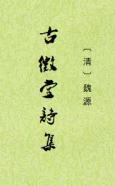 〔清〕魏源
古微堂詩集